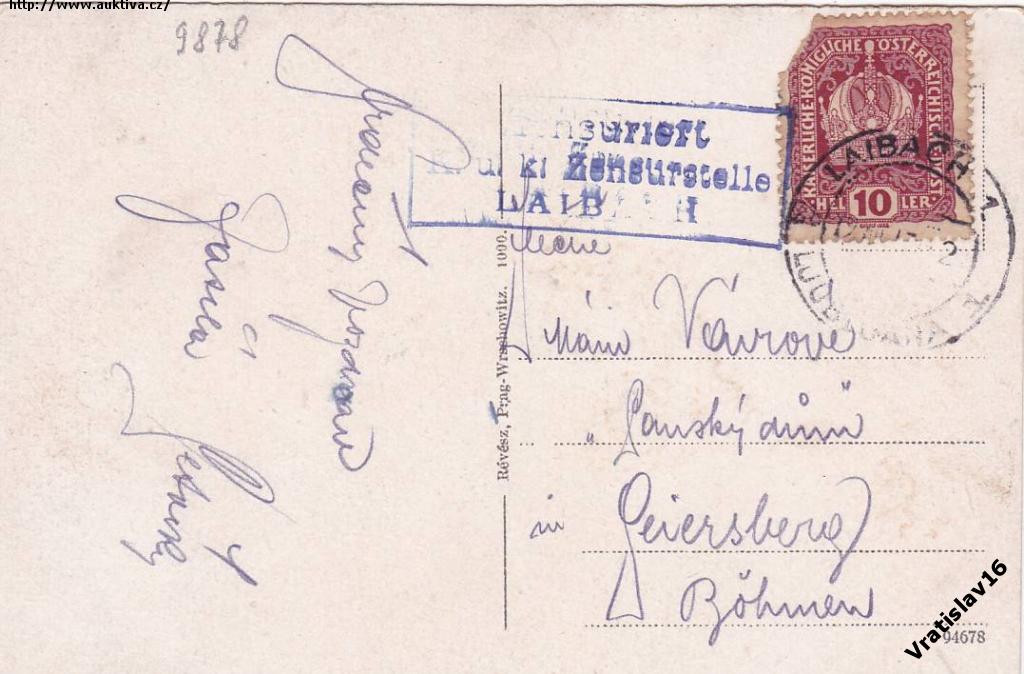 http://www.auktiva.cz/
9878
Srdečný pozdrav
Zensuriert
K. u. k. Zensurstelle
LAIBACH
KAISERLICHE KÖNIGLICHE ÖSTERREICHISCHE POST
10
HELLER
LAIBACH 1
LJUBLJANA
Révész, Prag-Wrschowitz. 1000.
Vávrove
"Panský dům"
in Geiersberg
Böhmen
94678
Vratislav16